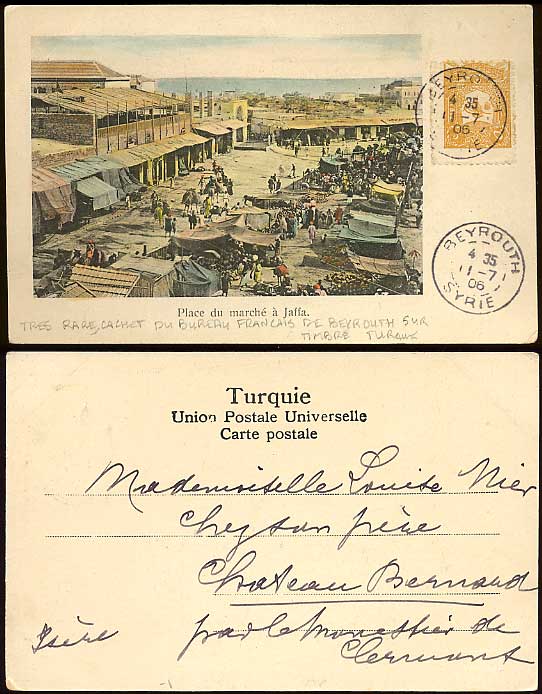 BEYROUTH
4 35
11-7
06
E
Place du marché à Jaffa.
TRES RARE, CACHET DU BUREAU FRANCAIS DE BEYROUTH SUR
TIMBRE TURQUE
BEYROUTH
4 35
11-7
06
SYRIE
Turquie
Union Postale Universelle
Carte postale
Mademoiselle Louise Nier
Chez son frère
Chateau Bernard
par le Monestier de
Clermont
Isère